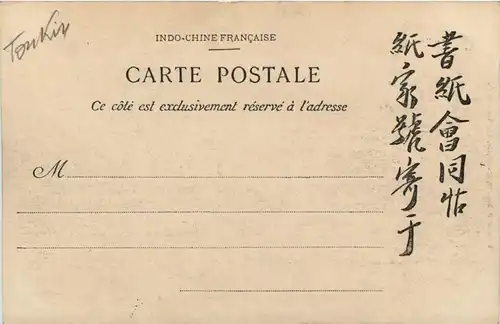 Tonkin
INDO-CHINE FRANÇAISE
CARTE POSTALE
Ce côté est exclusivement réservé à l'adresse
M
書紙會同帖
紙家號寄于